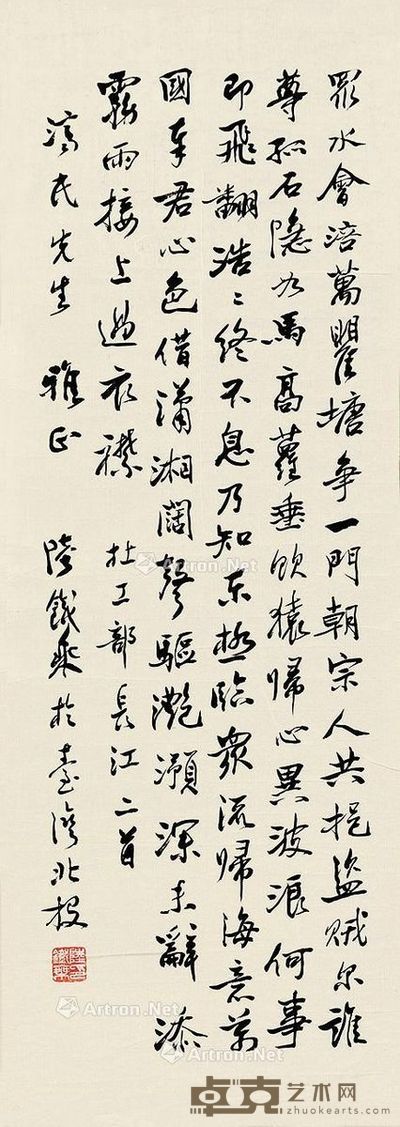 眾水會涪萬瞿塘爭一門朝宗人共挹盜賊尔誰
尊孤石隱如馬高蘿垂飲猿歸心異波浪何事
即飛翻浩〻終不息乃知東極臨眾流歸海意萬
國奉君心色借瀟湘闊聲驅灩澦深未辭添
霧雨接上過衣襟 杜工部長江二首
民先生 雅正 陸鐵乘於臺灣北投
Artron.Net
Artron.Net
Artron.Net
Artron.Net
Artron.Net
Artron.Net
卓克艺术网
zhuokearts.com